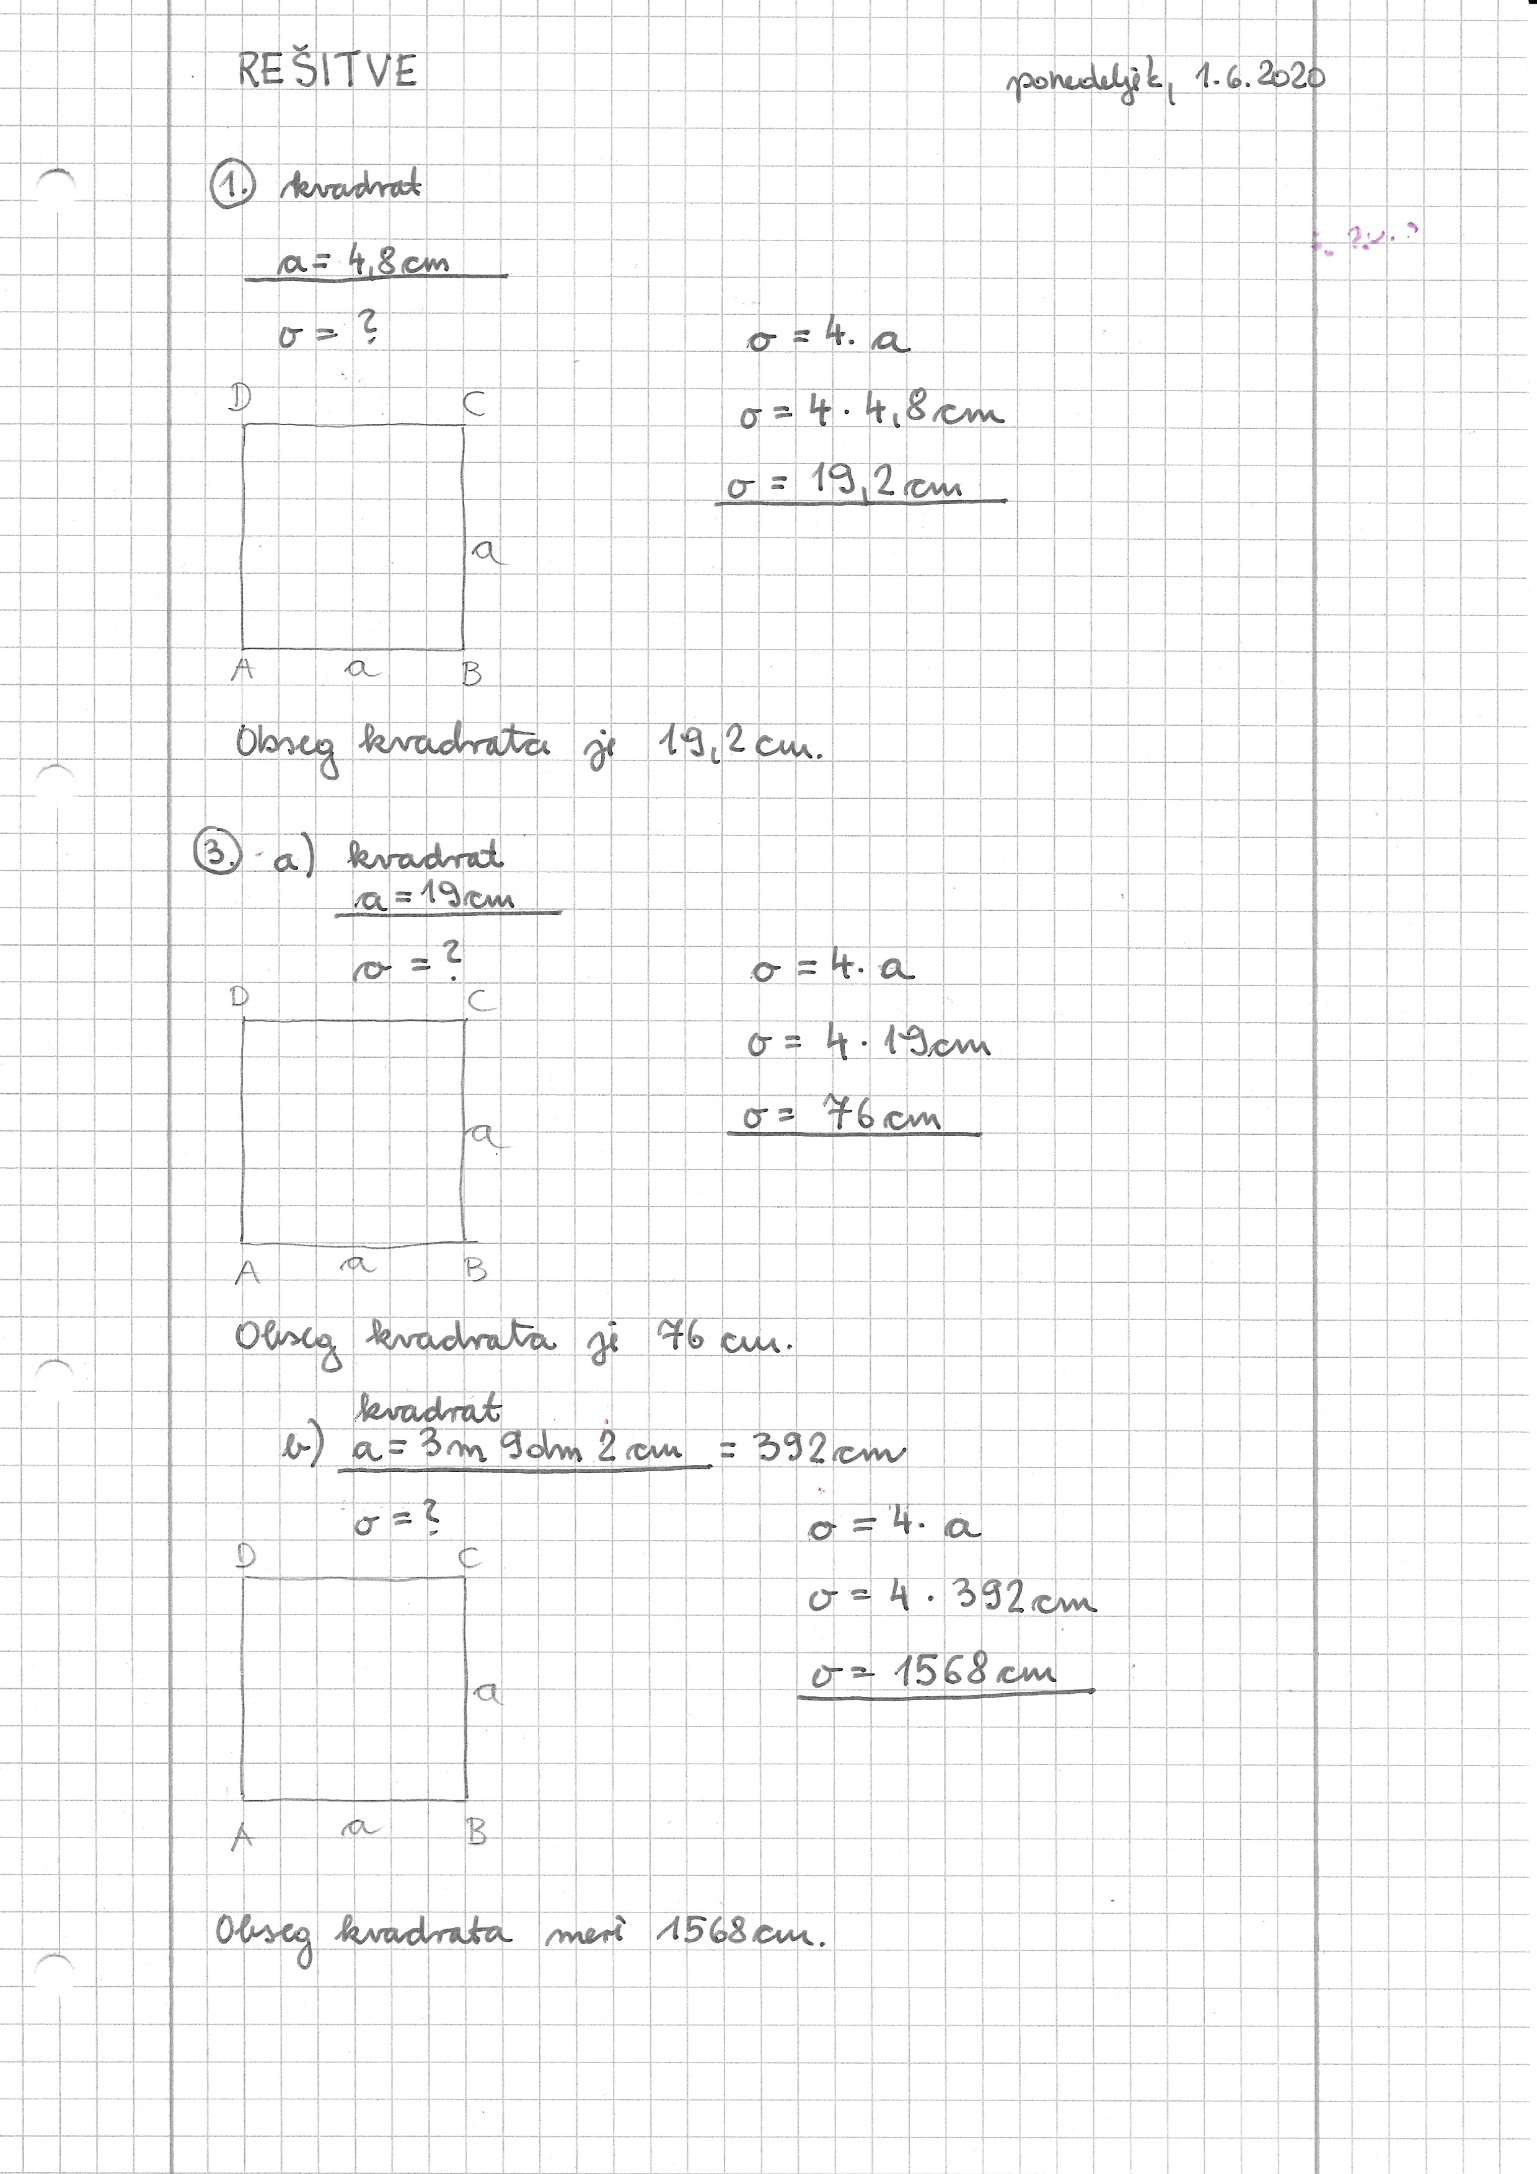 REŠITVE
ponedeljek, 1.6.2020
1. kvadrat
a = 4,8 cm
o = ?
o = 4 · a
o = 4 · 4,8 cm
o = 19,2 cm
D C
a
A a B
Obseg kvadrata je 19,2 cm.
3. a) kvadrat
a = 19 cm
o = ?
o = 4 · a
o = 4 · 19 cm
o = 76 cm
D C
a
A a B
Obseg kvadrata je 76 cm.
kvadrat
b) a = 3 m 9 dm 2 cm = 392 cm
o = ?
o = 4 · a
o = 4 · 392 cm
o = 1568 cm
D C
a
A a B
Obseg kvadrata meri 1568 cm.